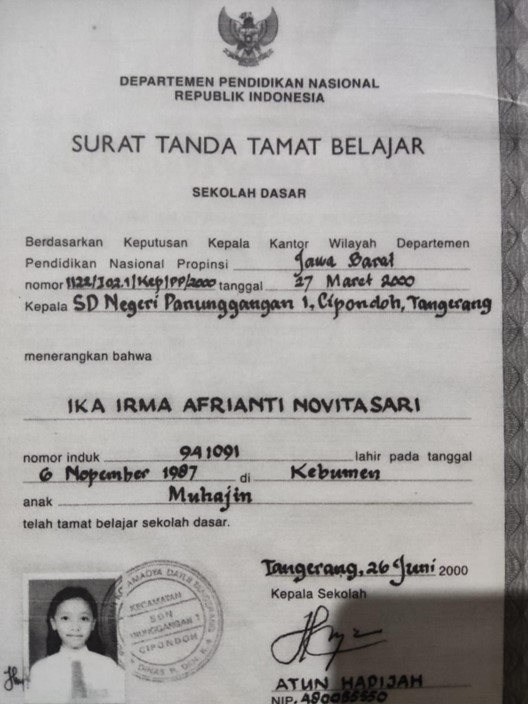 DEPARTEMEN PENDIDIKAN NASIONAL
REPUBLIK INDONESIA
SURAT TANDA TAMAT BELAJAR
SEKOLAH DASAR
Berdasarkan Keputusan Kepala Kantor Wilayah Departemen
Pendidikan Nasional Propinsi Jawa Barat
nomor 1122/I02.1/Kep/PP/2000 tanggal 27 Maret 2000
Kepala SD Negeri Panunggangan 1, Cipondoh, Tangerang
menerangkan bahwa
IKA IRMA AFRIANTI NOVITASARI
nomor induk 941091 lahir pada tanggal
6 Nopember 1987 di Kebumen
anak Muhajin
telah tamat belajar sekolah dasar.
Tangerang, 26 Juni 2000
Kepala Sekolah
KECAMATAN
SDN
PANUNGGANGAN 1
CIPONDOH
ATUN HADIJAH
NIP. 480055550